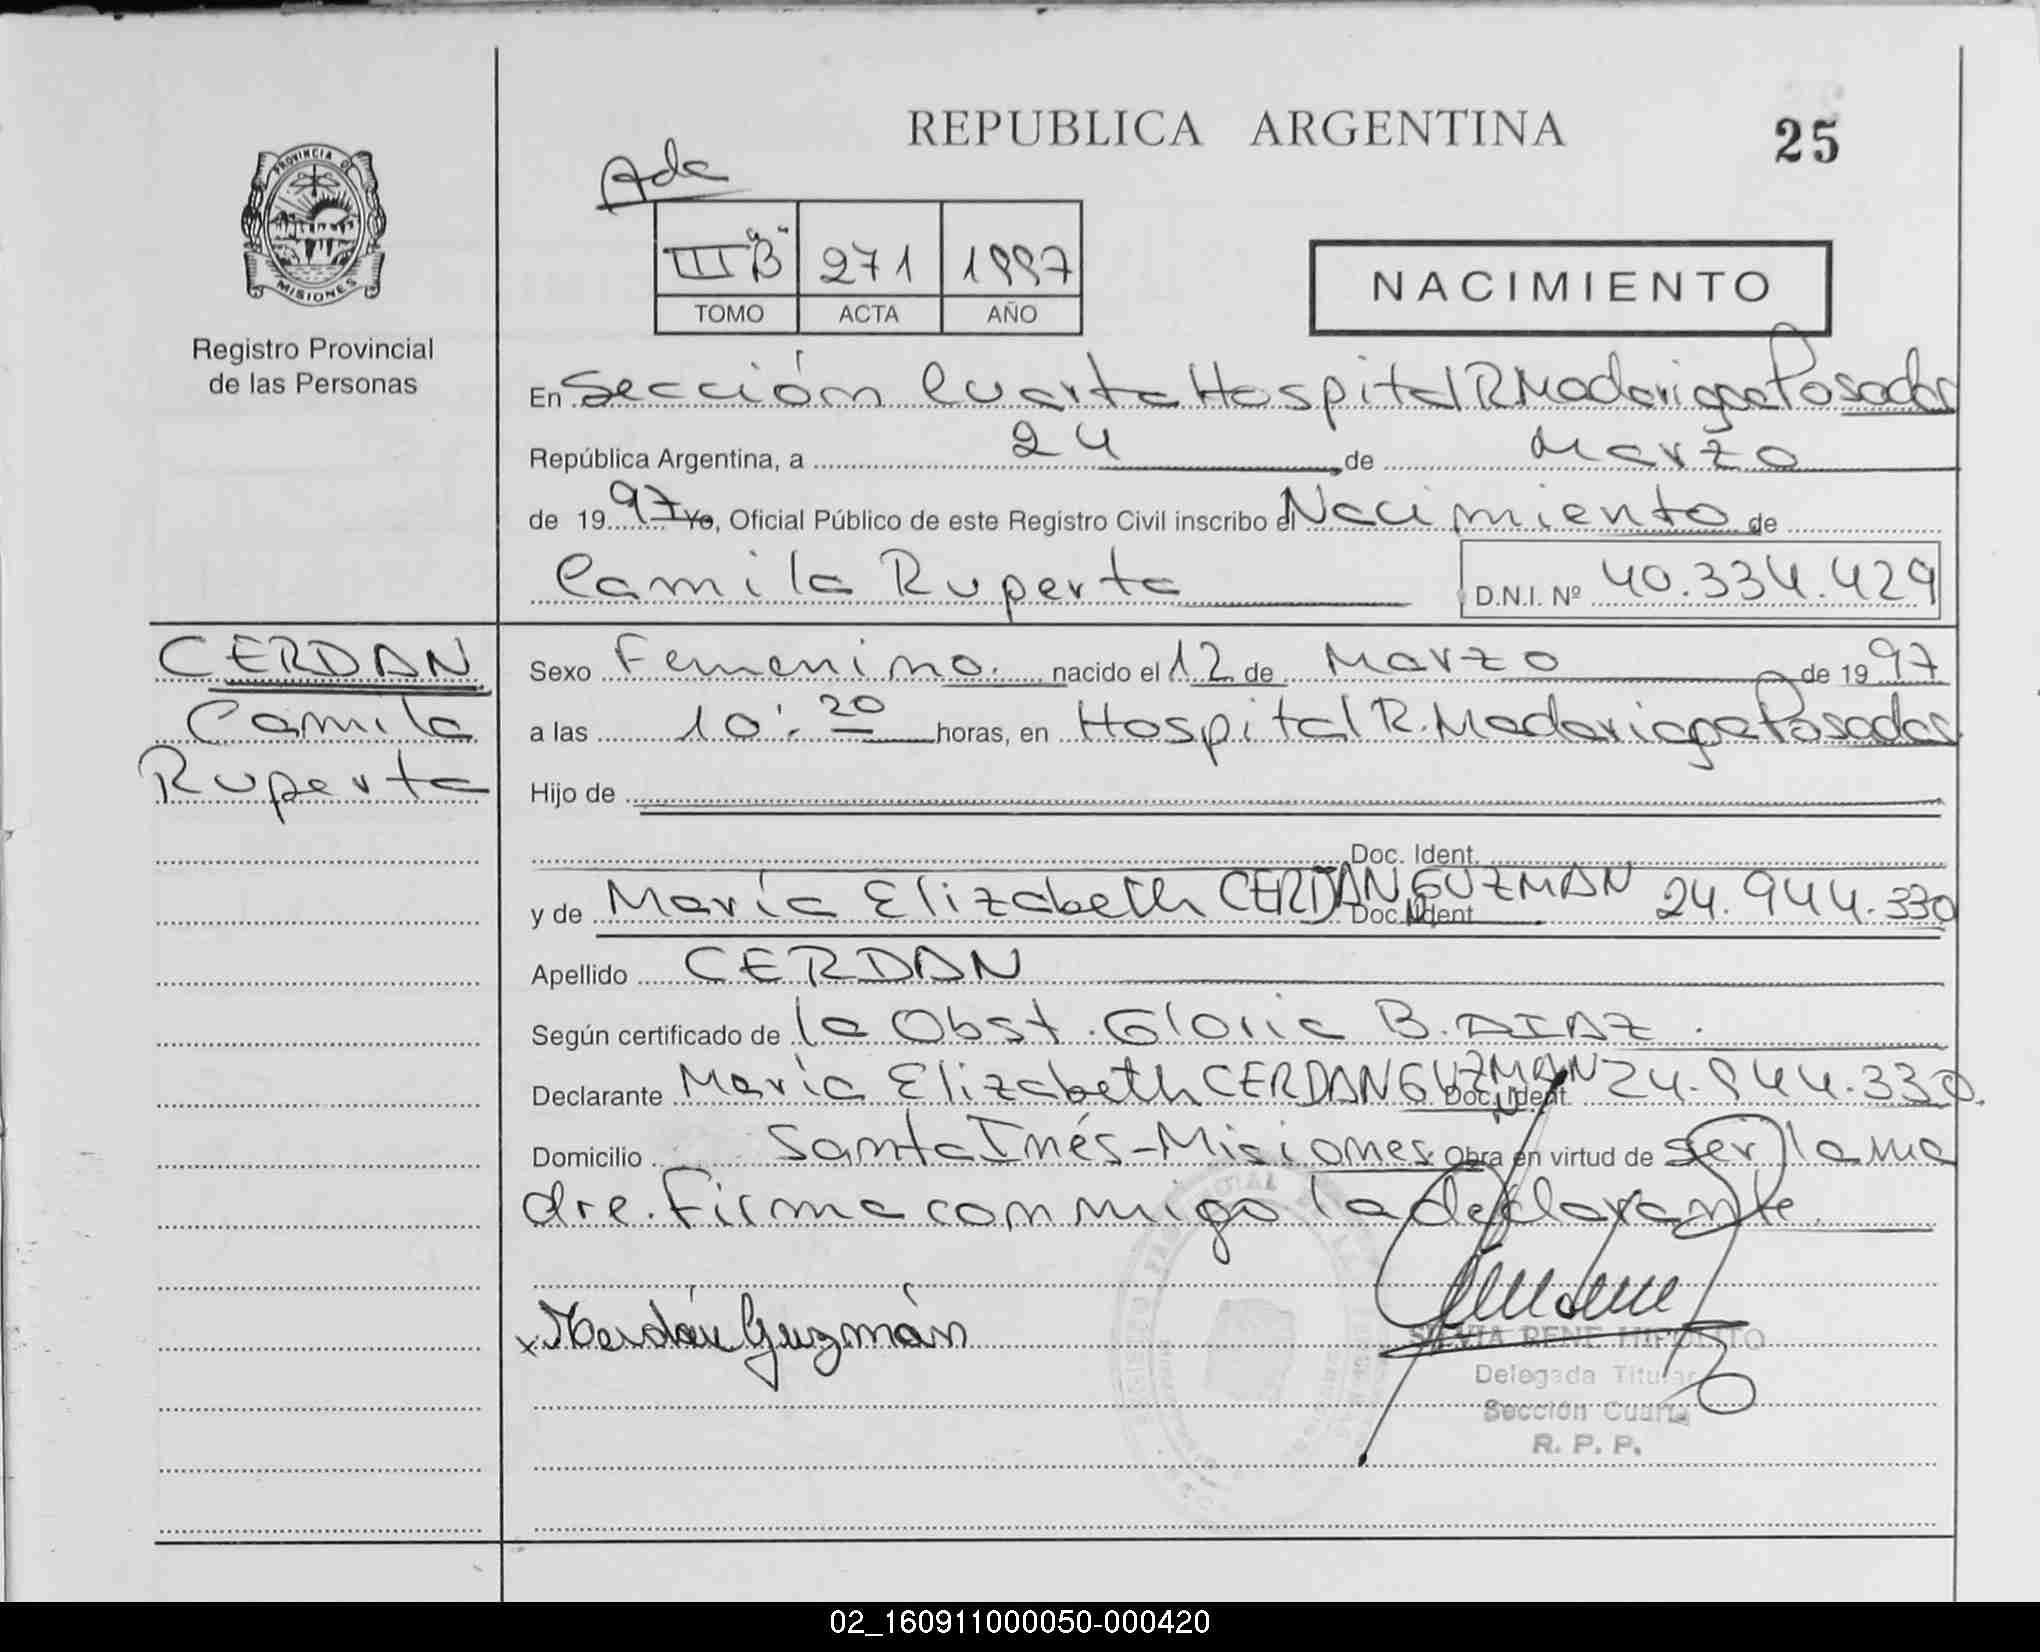 REPUBLICA ARGENTINA
25
PROVINCIA DE
MISIONES
Registro Provincial
de las Personas
Ada
III "B" 271 1997
TOMO ACTA AÑO
NACIMIENTO
En Sección Cuarta Hospital R Madariaga Posadas
República Argentina, a 24 de Marzo
de 1997 Yo, Oficial Público de este Registro Civil inscribo el Nacimiento de
Camila Ruperta D.N.I. Nº 40.334.429
CERDAN
Camila
Ruperta
Sexo Femenino. nacido el 12 de Marzo de 1997
a las 10:20 horas, en Hospital R. Madariaga Posadas
Hijo de
Doc. Ident.
y de María Elizabeth CERDAN GUZMAN Doc. Ident 24.944.330
Apellido CERDAN
Según certificado de la Obst. Gloria B. DIAZ.
Declarante María Elizabeth CERDAN GUZMAN Doc. Ident. 24.944.330.
Domicilio Santa Inés-Misiones Obra en virtud de ser la ma
dre. Firma conmigo la declarante.
x Cerdán Guzmán
SILVIA RENE HIPOLITO
Delegada Titular
Sección Cuarta
R. P. P.
02_160911000050-000420